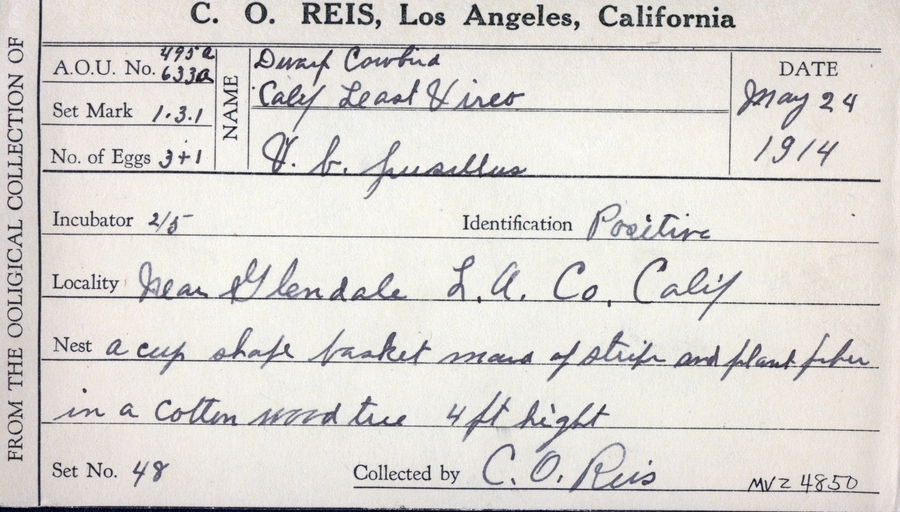 C. O. REIS, Los Angeles, California
FROM THE OOLIGICAL COLLECTION OF
A.O.U. No. 495a 633a
NAME
Dwarf Cowbird
Calif Least Vireo
V. b. pusillus
DATE
May 24
1914
Set Mark 1.3.1
No. of Eggs 3+1
Incubator 2/5 Identification Positive
Locality Near Glendale L.A. Co, Calif
Nest a cup shape basket maid of strips and plant fiber
in a cotton wood tree 4 ft hight
Set No. 48 Collected by C. O. Reis MVZ 4850